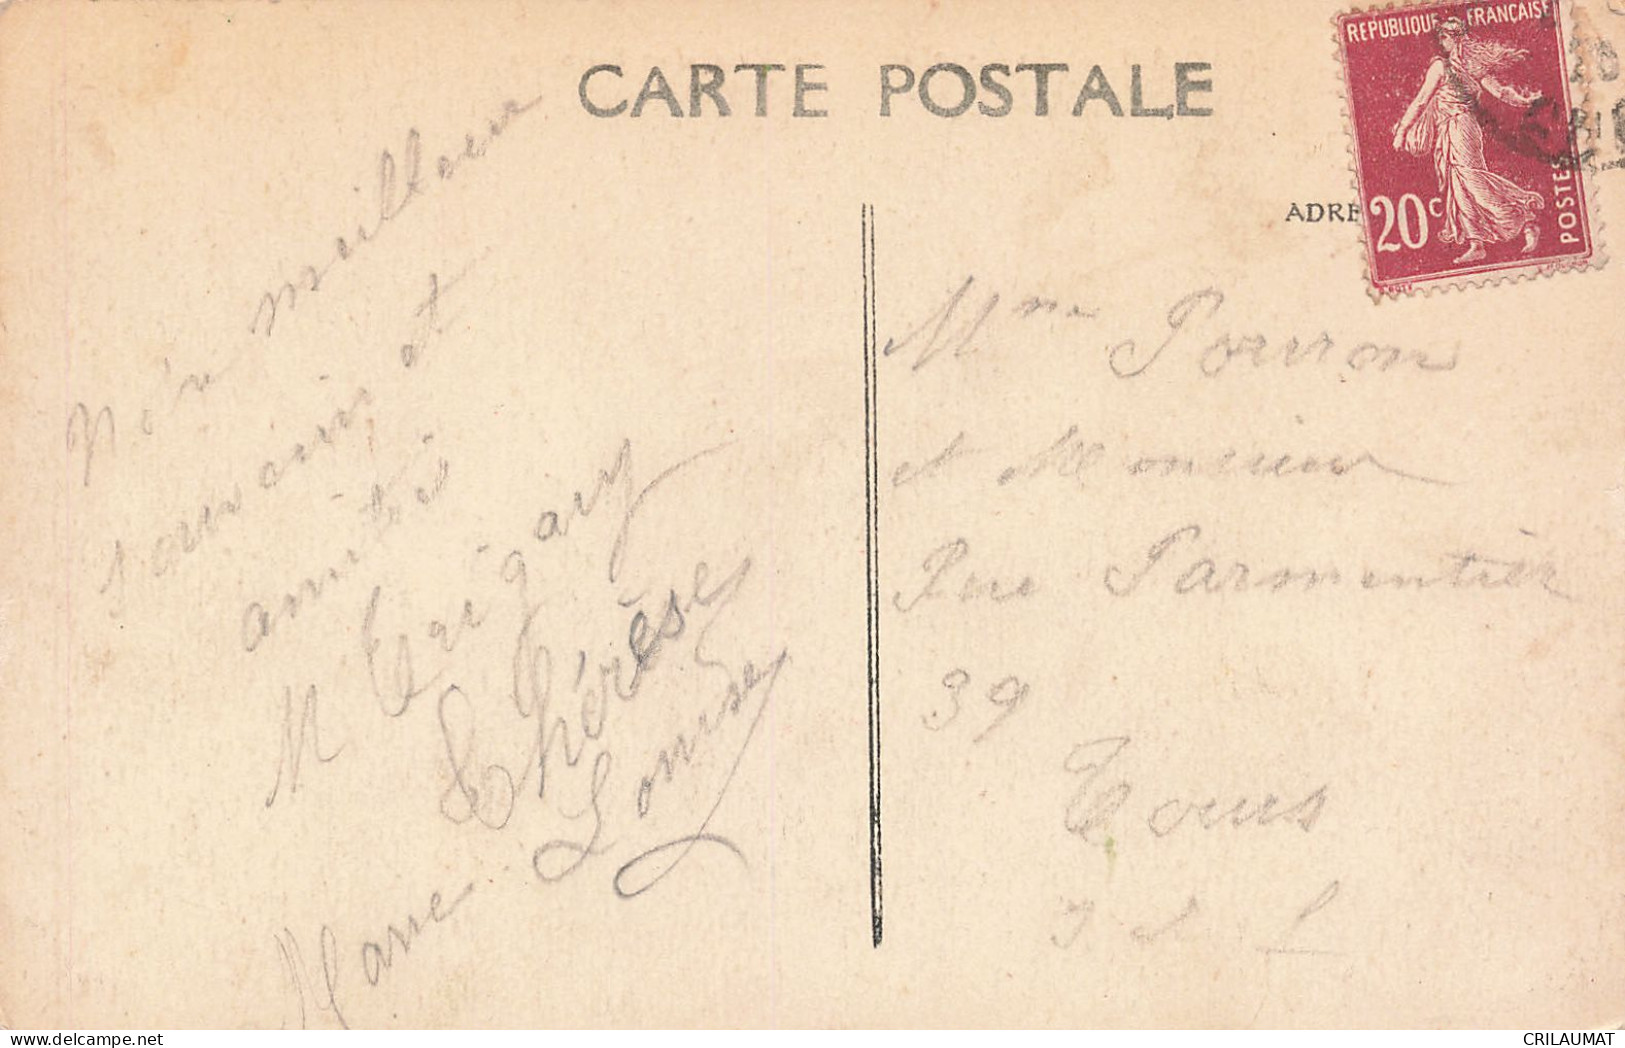 CARTE POSTALE
REPUBLIQUE FRANÇAISE
20c
POSTES
ADRE
meilleur
souvenir et
amitié
M Trigary
Thérèse
Marie Louise
Mme Porron
et Monsieur
Rue Parmentier
39
Tours
I et L
CRILAUMAT